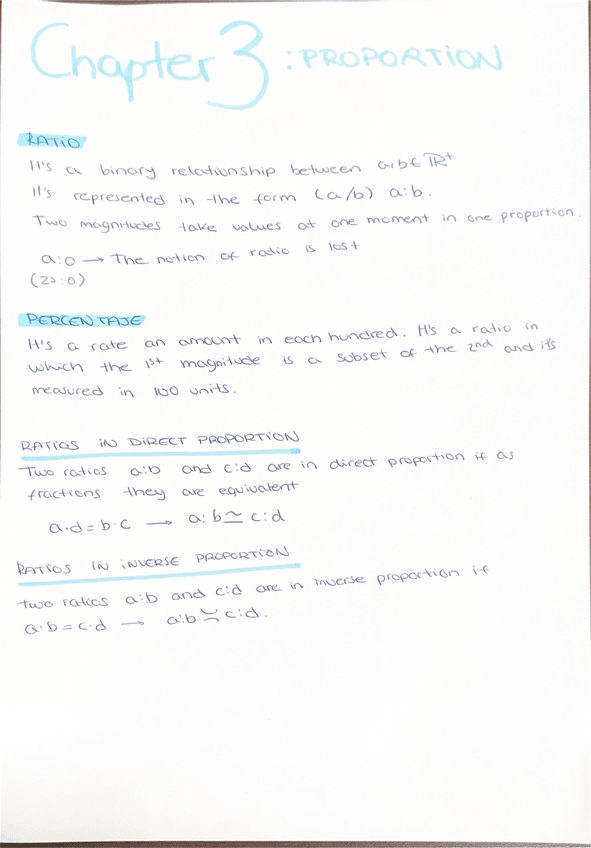 Chapter 3 : PROPORTION
RATIO
It's a binary relationship between a,b ∈ ℝ⁺
It's represented in the form (a/b) a:b.
Two magnitudes take values at one moment in one proportion.
a:0 → The notion of ratio is lost
(23:0)
PERCENTAJE
It's a rate an amount in each hundred. It's a ratio in
which the 1st magnitude is a subset of the 2nd and it's
measured in 100 units.
RATIOS IN DIRECT PROPORTION
Two ratios a:b and c:d are in direct proportion if as
fractions they are equivalent
a·d = b·c → a:b ≃ c:d
RATIOS IN INVERSE PROPORTION
two ratios a:b and c:d are in inverse proportion if
a·b = c·d → a:b ≍ c:d.